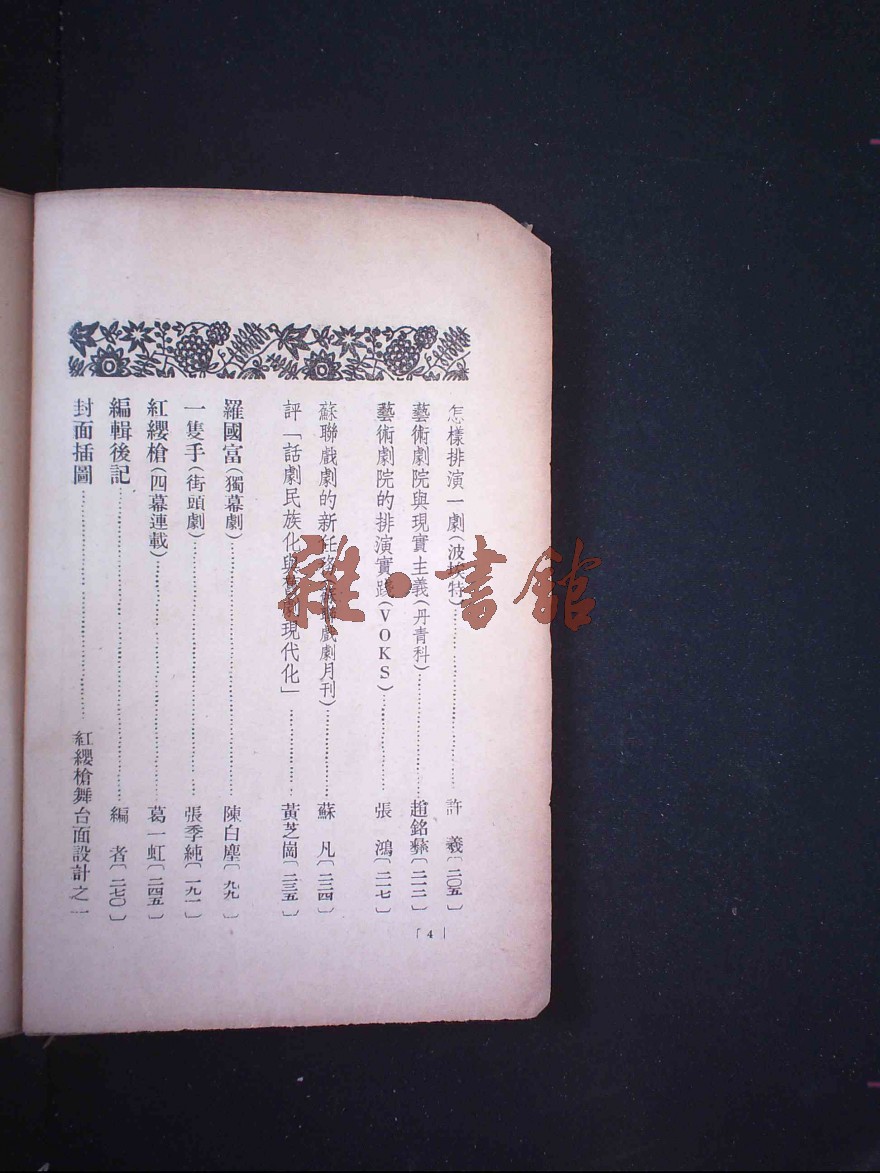 怎樣排演一劇(波埃特)………許羲〔二〇五〕
藝術劇院與現實主義(丹青科)………趙銘彝〔二一二〕
藝術劇院的排演實踐(VOKS)………張鴻〔二一七〕
蘇聯戲劇的新任務(蘇聯戲劇月刊)………蘇凡〔二三四〕
評「話劇民族化與舊劇現代化」………黃芝崗〔二三五〕
羅國富(獨幕劇)………陳白塵〔九九〕
一隻手(街頭劇)………張季純〔一九一〕
紅纓槍(四幕連載)………葛一虹〔二四五〕
編輯後記………編者〔二七〇〕
封面插圖………紅纓槍舞台面設計之一
「4|
雜·書館